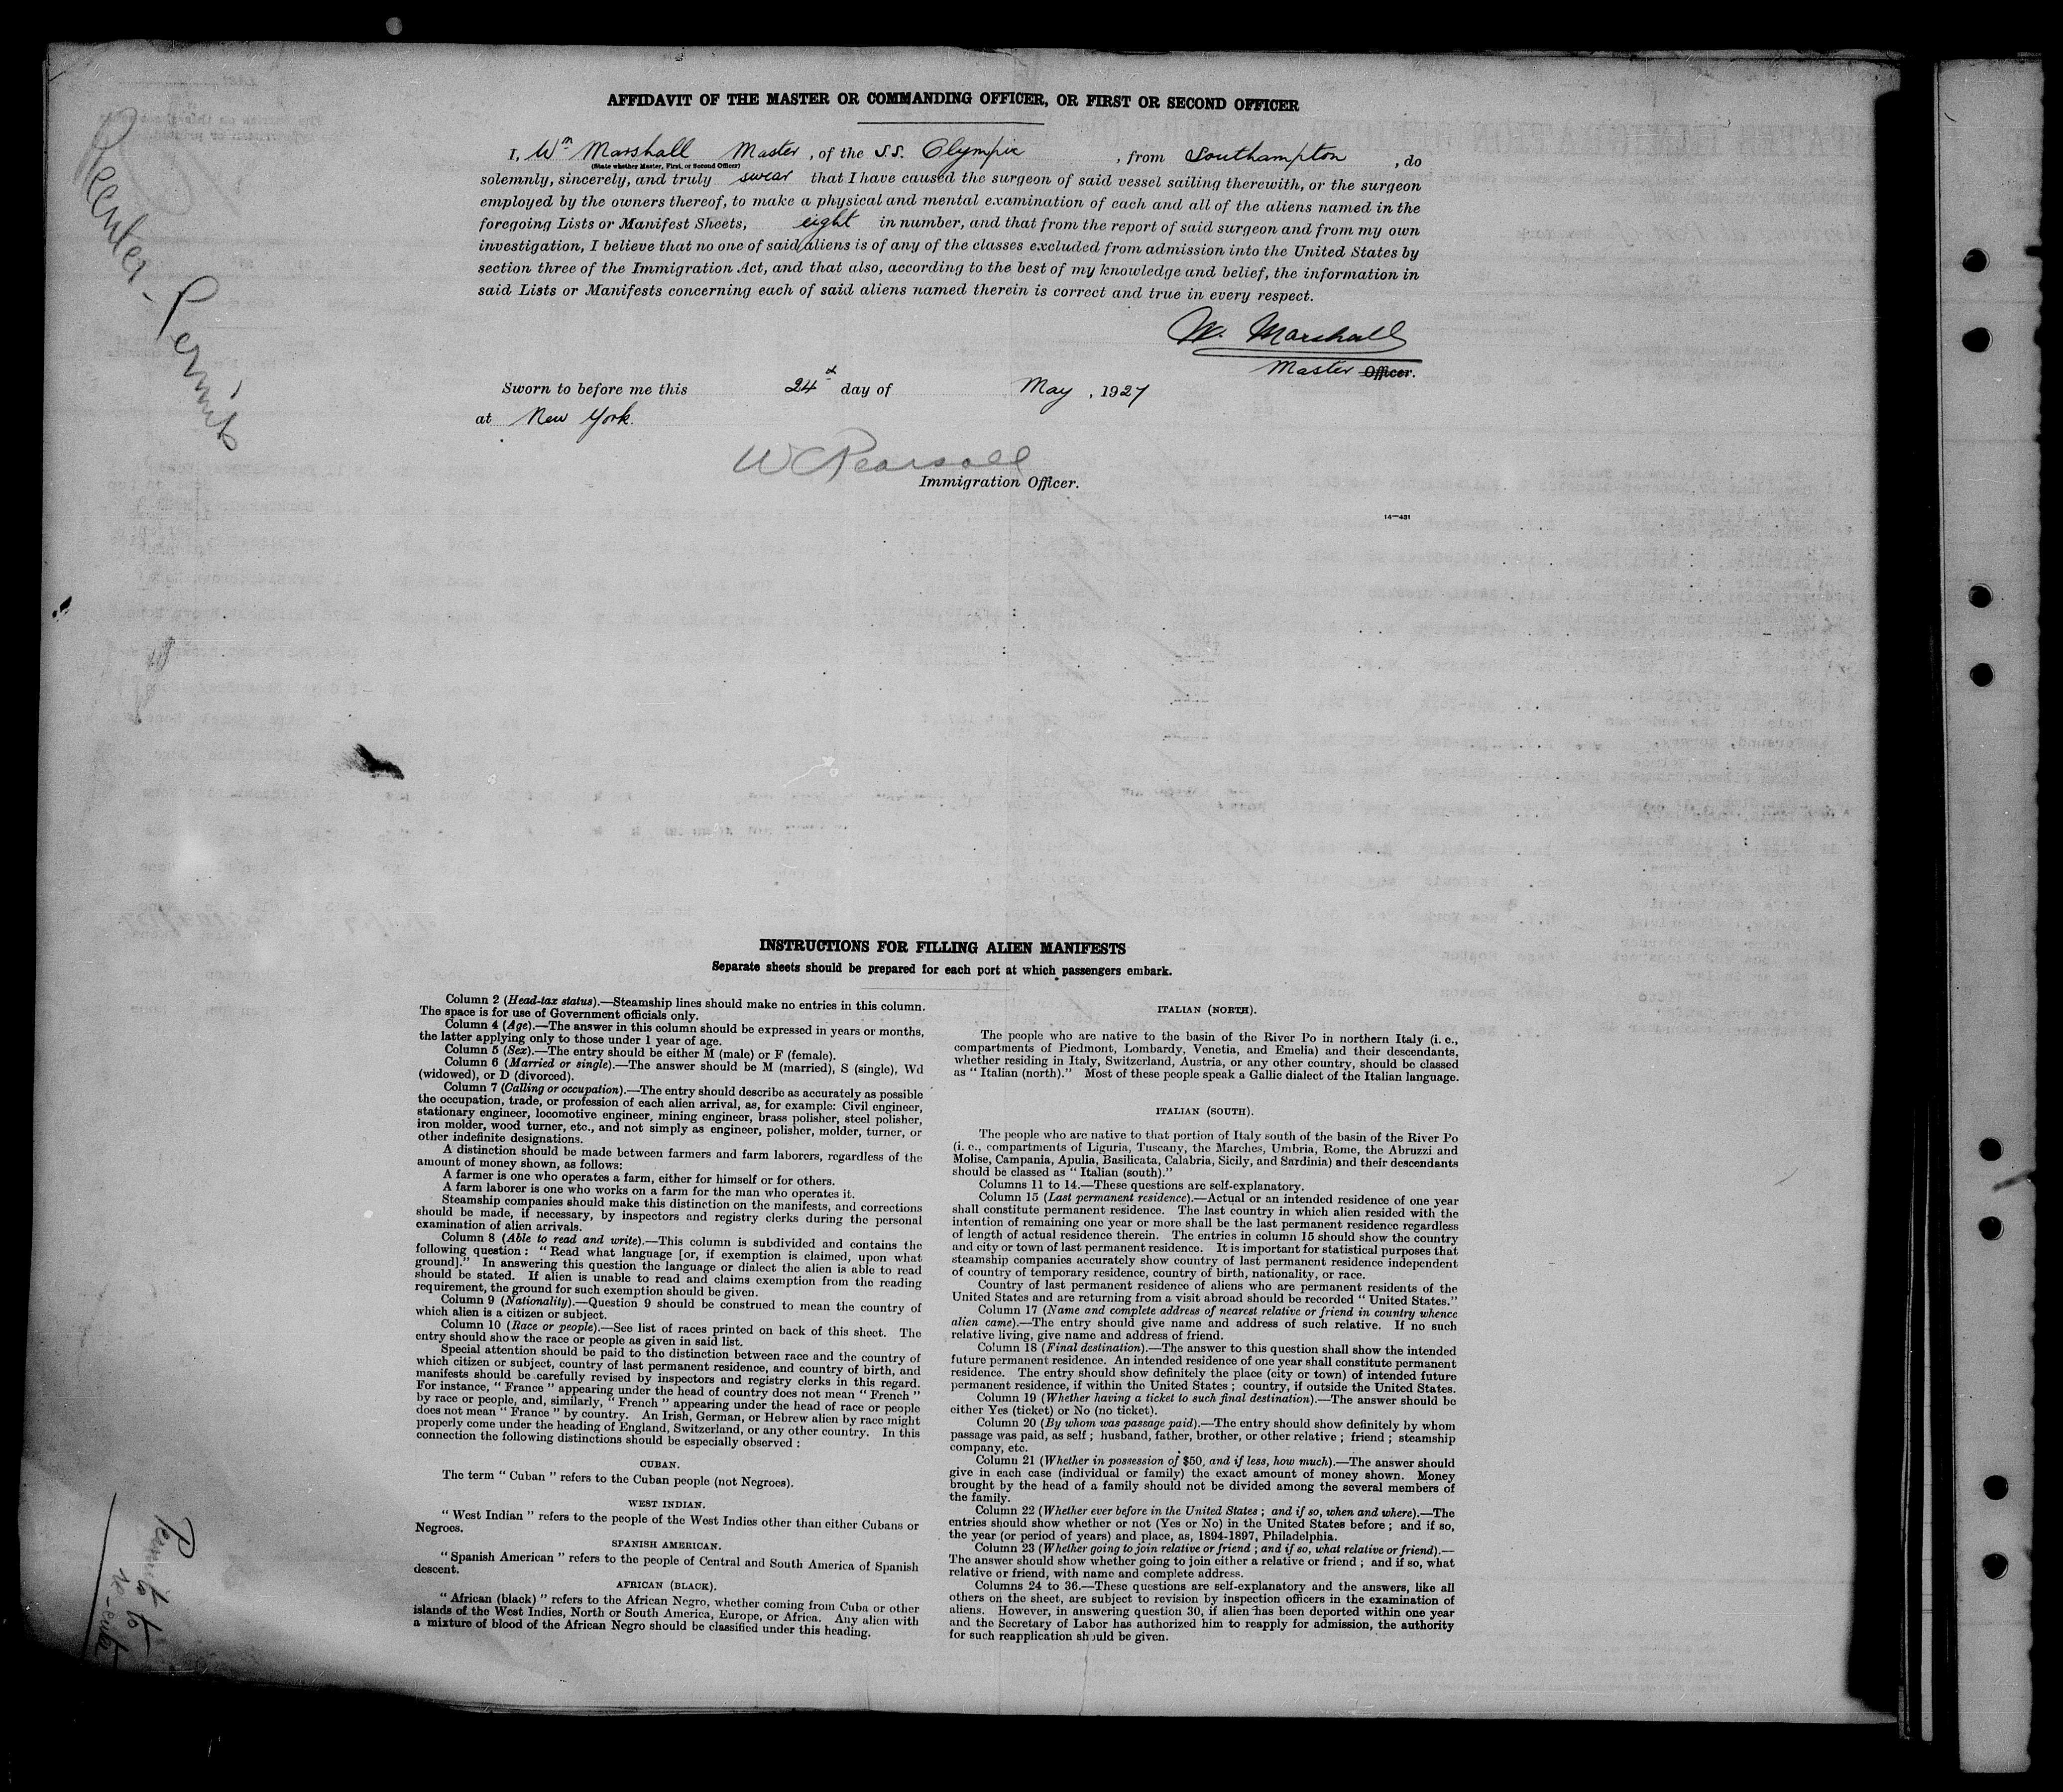 AFFIDAVIT OF THE MASTER OR COMMANDING OFFICER, OR FIRST OR SECOND OFFICER
I, Wm Marshall Master, of the S.S. Olympic, from Southampton, do
(State whether Master, First, or Second Officer)
solemnly, sincerely, and truly swear that I have caused the surgeon of said vessel sailing therewith, or the surgeon
employed by the owners thereof, to make a physical and mental examination of each and all of the aliens named in the
foregoing Lists or Manifest Sheets, eight in number, and that from the report of said surgeon and from my own
investigation, I believe that no one of said aliens is of any of the classes excluded from admission into the United States by
section three of the Immigration Act, and that also, according to the best of my knowledge and belief, the information in
said Lists or Manifests concerning each of said aliens named therein is correct and true in every respect.
W. Marshall
Master Officer.
Sworn to before me this 24th day of May, 1927
at New York.
W C Pearsall
Immigration Officer.
14—431
Reenter - Permit
INSTRUCTIONS FOR FILLING ALIEN MANIFESTS
Separate sheets should be prepared for each port at which passengers embark.
Column 2 (Head-tax status).—Steamship lines should make no entries in this column.
The space is for use of Government officials only.
Column 4 (Age).—The answer in this column should be expressed in years or months,
the latter applying only to those under 1 year of age.
Column 5 (Sex).—The entry should be either M (male) or F (female).
Column 6 (Married or single).—The answer should be M (married), S (single), Wd
(widowed), or D (divorced).
Column 7 (Calling or occupation).—The entry should describe as accurately as possible
the occupation, trade, or profession of each alien arrival, as, for example: Civil engineer,
stationary engineer, locomotive engineer, mining engineer, brass polisher, steel polisher,
iron molder, wood turner, etc., and not simply as engineer, polisher, molder, turner, or
other indefinite designations.
A distinction should be made between farmers and farm laborers, regardless of the
amount of money shown, as follows:
A farmer is one who operates a farm, either for himself or for others.
A farm laborer is one who works on a farm for the man who operates it.
Steamship companies should make this distinction on the manifests, and corrections
should be made, if necessary, by inspectors and registry clerks during the personal
examination of alien arrivals.
Column 8 (Able to read and write).—This column is subdivided and contains the
following question : “ Read what language [or, if exemption is claimed, upon what
ground].” In answering this question the language or dialect the alien is able to read
should be stated. If alien is unable to read and claims exemption from the reading
requirement, the ground for such exemption should be given.
Column 9 (Nationality).—Question 9 should be construed to mean the country of
which alien is a citizen or subject.
Column 10 (Race or people).—See list of races printed on back of this sheet. The
entry should show the race or people as given in said list.
Special attention should be paid to the distinction between race and the country of
which citizen or subject, country of last permanent residence, and country of birth, and
manifests should be carefully revised by inspectors and registry clerks in this regard.
For instance, “ France ” appearing under the head of country does not mean “ French ”
by race or people, and, similarly, “ French ” appearing under the head of race or people
does not mean “ France ” by country. An Irish, German, or Hebrew alien by race might
properly come under the heading of England, Switzerland, or any other country. In this
connection the following distinctions should be especially observed :
CUBAN.
The term “ Cuban ” refers to the Cuban people (not Negroes).
WEST INDIAN.
“ West Indian ” refers to the people of the West Indies other than either Cubans or
Negroes.
SPANISH AMERICAN.
“ Spanish American ” refers to the people of Central and South America of Spanish
descent.
AFRICAN (BLACK).
“ African (black) ” refers to the African Negro, whether coming from Cuba or other
islands of the West Indies, North or South America, Europe, or Africa. Any alien with
a mixture of blood of the African Negro should be classified under this heading.
ITALIAN (NORTH).
The people who are native to the basin of the River Po in northern Italy (i. e.,
compartments of Piedmont, Lombardy, Venetia, and Emelia) and their descendants,
whether residing in Italy, Switzerland, Austria, or any other country, should be classed
as “ Italian (north).” Most of these people speak a Gallic dialect of the Italian language.
ITALIAN (SOUTH).
The people who are native to that portion of Italy south of the basin of the River Po
(i. e., compartments of Liguria, Tuscany, the Marches, Umbria, Rome, the Abruzzi and
Molise, Campania, Apulia, Basilicata, Calabria, Sicily, and Sardinia) and their descendants
should be classed as “ Italian (south).”
Columns 11 to 14.—These questions are self-explanatory.
Column 15 (Last permanent residence).—Actual or an intended residence of one year
shall constitute permanent residence. The last country in which alien resided with the
intention of remaining one year or more shall be the last permanent residence regardless
of length of actual residence therein. The entries in column 15 should show the country
and city or town of last permanent residence. It is important for statistical purposes that
steamship companies accurately show country of last permanent residence independent
of country of temporary residence, country of birth, nationality, or race.
Country of last permanent residence of aliens who are permanent residents of the
United States and are returning from a visit abroad should be recorded “ United States.”
Column 17 (Name and complete address of nearest relative or friend in country whence
alien came).—The entry should give name and address of such relative. If no such
relative living, give name and address of friend.
Column 18 (Final destination).—The answer to this question shall show the intended
future permanent residence. An intended residence of one year shall constitute permanent
residence. The entry should show definitely the place (city or town) of intended future
permanent residence, if within the United States ; country, if outside the United States.
Column 19 (Whether having a ticket to such final destination).—The answer should be
either Yes (ticket) or No (no ticket).
Column 20 (By whom was passage paid).—The entry should show definitely by whom
passage was paid, as self ; husband, father, brother, or other relative ; friend ; steamship
company, etc.
Column 21 (Whether in possession of $50, and if less, how much).—The answer should
give in each case (individual or family) the exact amount of money shown. Money
brought by the head of a family should not be divided among the several members of
the family.
Column 22 (Whether ever before in the United States ; and if so, when and where).—The
entries should show whether or not (Yes or No) in the United States before ; and if so,
the year (or period of years) and place, as, 1894-1897, Philadelphia.
Column 23 (Whether going to join relative or friend ; and if so, what relative or friend).—
The answer should show whether going to join either a relative or friend ; and if so, what
relative or friend, with name and complete address.
Columns 24 to 36.—These questions are self-explanatory and the answers, like all
others on the sheet, are subject to revision by inspection officers in the examination of
aliens. However, in answering question 30, if alien has been deported within one year
and the Secretary of Labor has authorized him to reapply for admission, the authority
for such reapplication should be given.
Permit to
re-enter